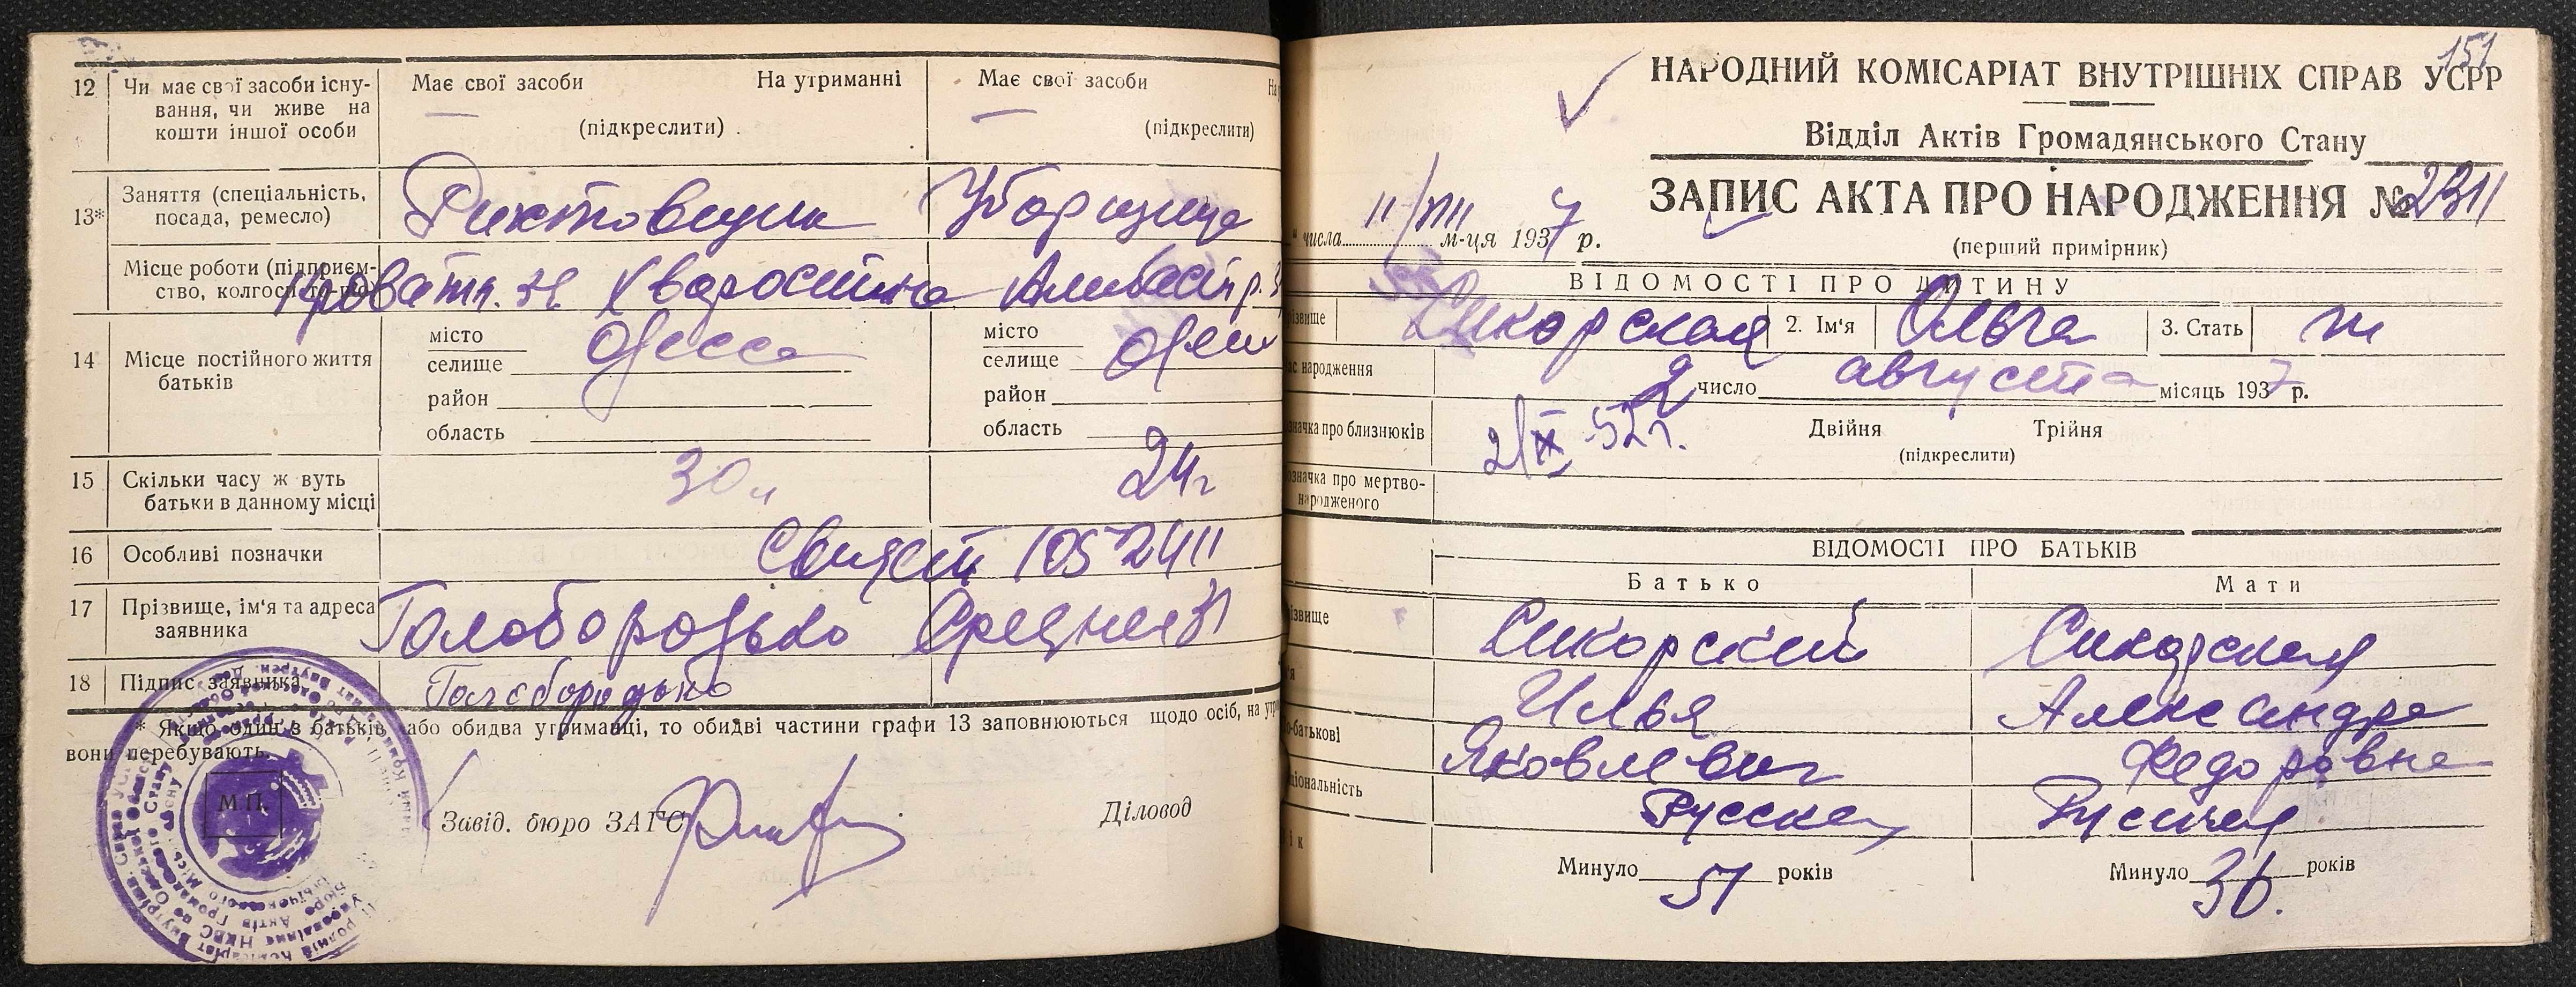 12 Чи має свої засоби існу-
вання, чи живе на
кошти іншої особи
Має свої засоби На утриманні
(підкреслити)
Має свої засоби
(підкреслити)
13* Заняття (спеціальність,
посада, ремесло)
Рихтовщик Уборщица
Місце роботи (підприєм-
ство, колгосп
Кроватн. Хворостина
14 Місце постійного життя
батьків
місто
селище Одесса
район
область
місто
селище
район
область
15 Скільки часу ж вуть
батьки в данному місці
30 л 24 г
16 Особливі позначки
105 2411
17 Прізвище, ім'я та адреса
заявника
Голобородько Средняя 31
18 Підпис заявника
Голобородько
* Якщо один з батьків або обидва утриманці, то обидві частини графи 13 заповнюються щодо осіб, на
вони перебувають.
М.П.
Завід. бюро ЗАГС
Діловод
151
НАРОДНИЙ КОМІСАРІАТ ВНУТРІШНІХ СПРАВ УСРР
Відділ Актів Громадянського Стану
ЗАПИС АКТА ПРО НАРОДЖЕННЯ № 2311
(перший примірник)
" числа 11/VIII м-ця 1937 р.
ВІДОМОСТІ ПРО ДИТИНУ
Сикорская 2. Ім'я Ольга 3. Стать ж
народження 2 число августа місяць 1937 р.
про близнюків 2/IX 52 г. Двійня Трійня
(підкреслити)
про мертво-
народженого
ВІДОМОСТІ ПРО БАТЬКІВ
Батько Мати
Сикорский Сикорская
Илья Александра
Яковлевич Федоровна
Русск Русская
Минуло 51 років Минуло 36 років